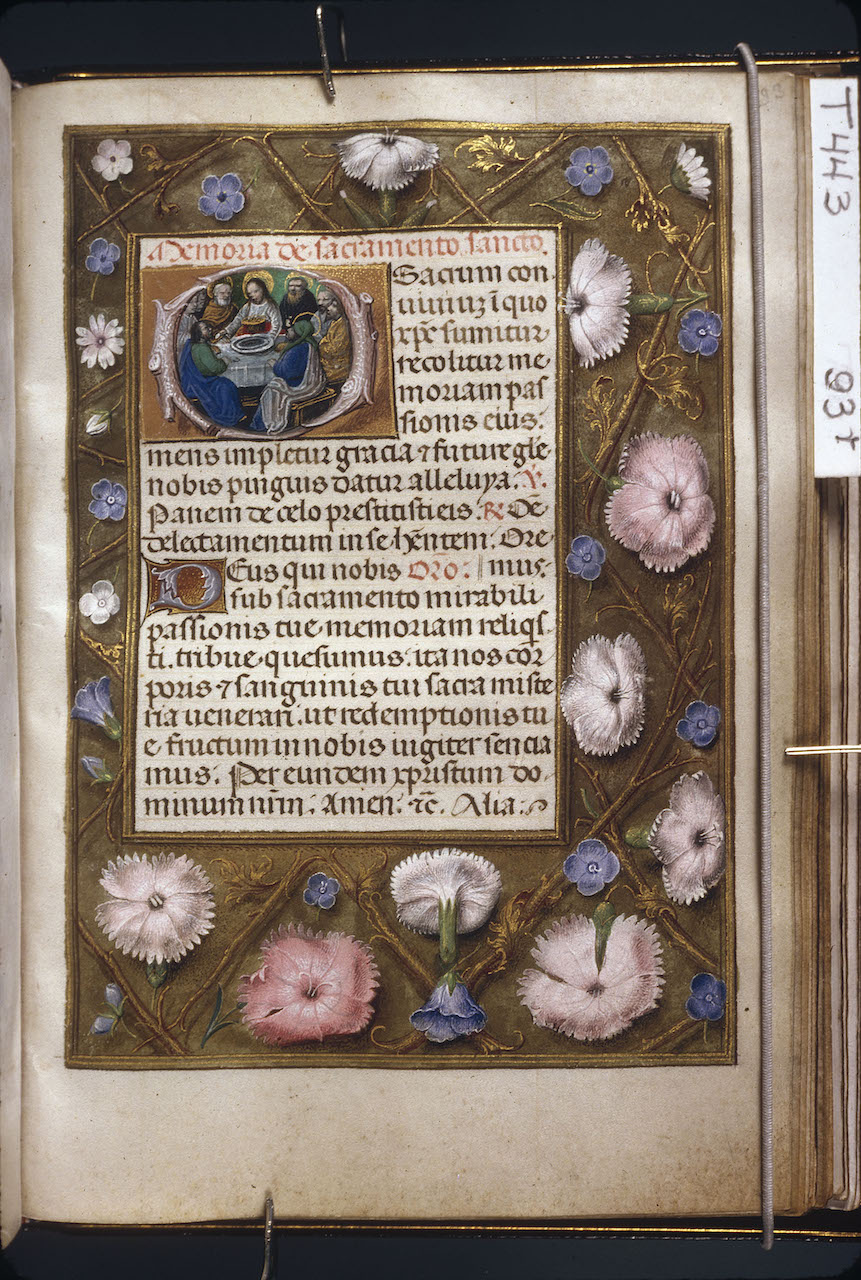 Memoria de sacramento sancto.
Sacrum con
uiuiuz ī quo
xp̄e sumitur
recolitur me
moriam pas
sionis eius:
mens impletur gracia ⁊ future gle
nobis pinguis datur alleluya. V.
Panem de celo prestitisti eis. R. Oē
delectamentum in se hēntem: Ore
Deus qui nobis Orō: mus:
sub sacramento mirabili
passionis tue memoriam reliqs
ti. tribue quesumus: ita nos cor
poris ⁊ sanguinis tui sacra miste
ria uenerari. ut redemptionis tu
e fructum in nobis iugiter sencia
mus: Per eundem xpristum do
minum nrm̄. Amen: ⁊c. Alia:
T443
93r